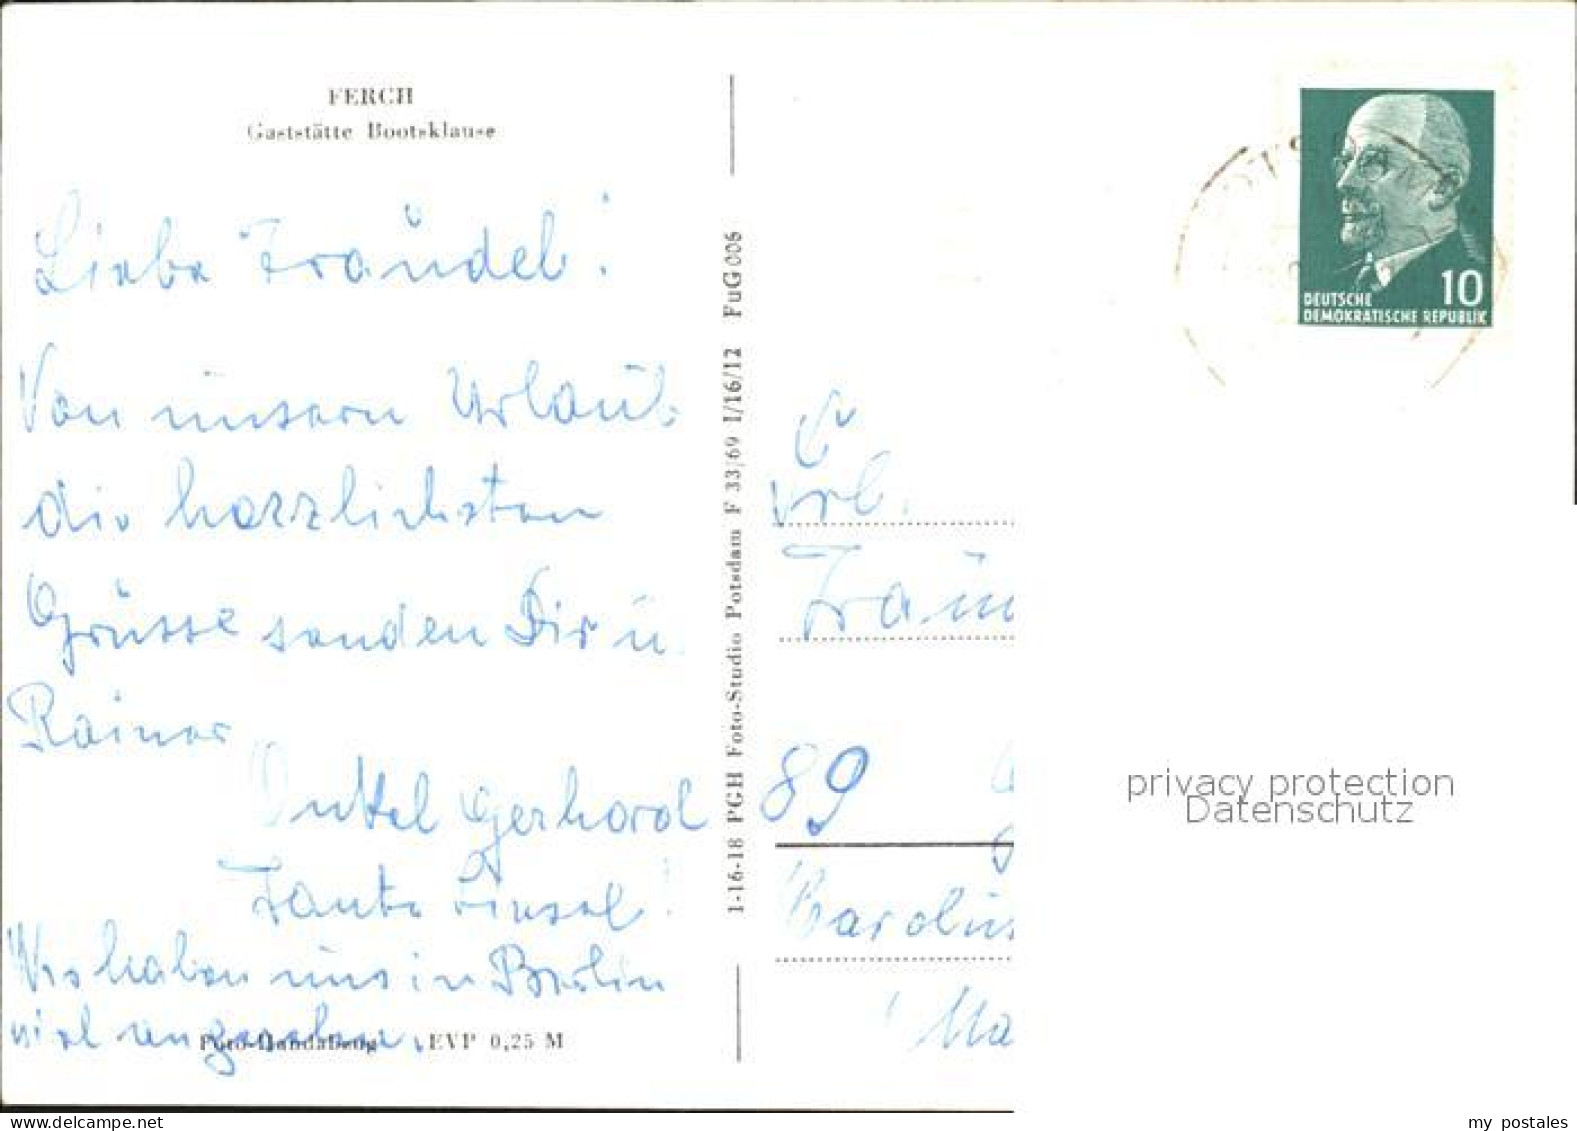 FERCH
Gaststätte Bootsklause
Liebe Traudel!
Von unsern Urlaub
die herzlichsten
Grüsse senden Dir u.
Rainer
Onkel Gerhard
Tante Liesel!
Wir haben uns in Berlin
viel angesehen.
Foto-Handabzug EVP 0,25 M
1-16-18 PGH Foto-Studio Potsdam F 33/69 I/16/12 FuG 006
10
DEUTSCHE
DEMOKRATISCHE REPUBLIK
89
privacy protection
Datenschutz
my postales